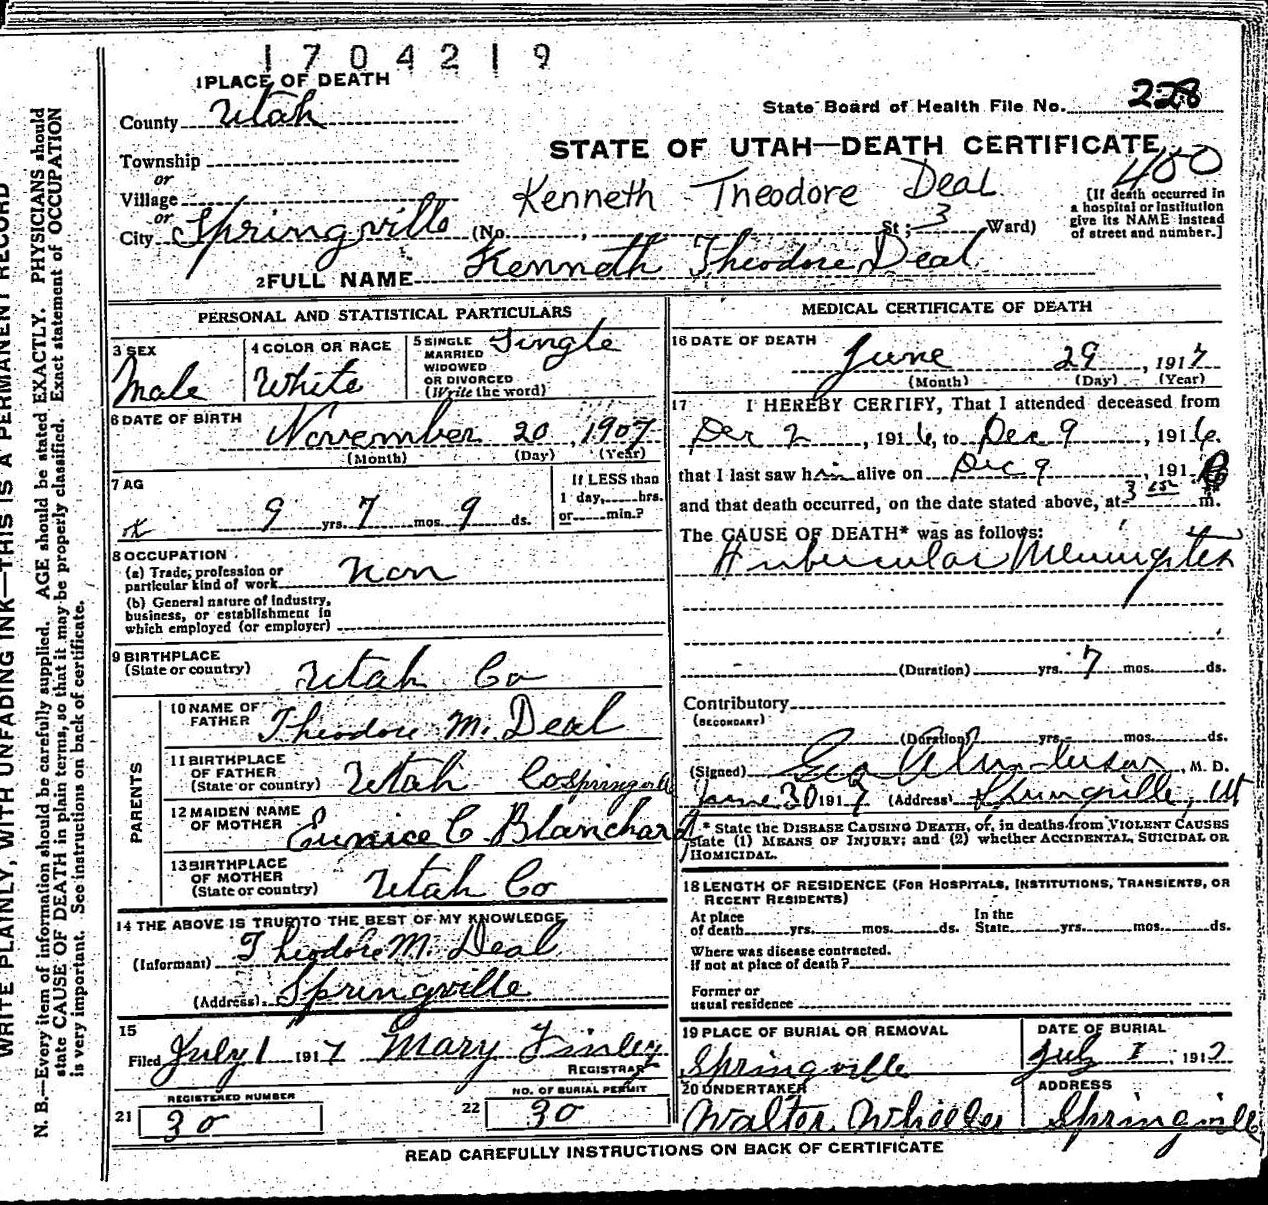 1704219
1 PLACE OF DEATH
State Board of Health File No. 228
County Utah
STATE OF UTAH—DEATH CERTIFICATE
Township
400
or
Village
Kenneth Theodore Deal
[If death occurred in
a hospital or institution
give its NAME instead
of street and number.]
or
City Springville (No. , St; 3 Ward)
2 FULL NAME Kenneth Theodore Deal
PERSONAL AND STATISTICAL PARTICULARS
3 SEX
Male
4 COLOR OR RACE
White
5 SINGLE
MARRIED
WIDOWED
OR DIVORCED
(Write the word)
Single
6 DATE OF BIRTH
November 20, 1907
(Month) (Day) (Year)
7 AG
9 yrs. 7 mos. 9 ds.
If LESS than
1 day, hrs.
or min.?
8 OCCUPATION
(a) Trade, profession or
particular kind of work non
(b) General nature of industry,
business, or establishment in
which employed (or employer)
9 BIRTHPLACE
(State or country) Utah Co
PARENTS
10 NAME OF
FATHER Theodore M. Deal
11 BIRTHPLACE
OF FATHER
(State or country) Utah Co Springville
12 MAIDEN NAME
OF MOTHER Eunice C Blanchard
13 BIRTHPLACE
OF MOTHER
(State or country) Utah Co
14 THE ABOVE IS TRUE TO THE BEST OF MY KNOWLEDGE
(Informant) Theodore M. Deal
(Address) Springville
15
Filed July 1 1917 Mary Finley
REGISTRAR
REGISTERED NUMBER
21 30
NO. OF BURIAL PERMIT
22 30
MEDICAL CERTIFICATE OF DEATH
16 DATE OF DEATH
June 29, 1917
(Month) (Day) (Year)
17 I HEREBY CERTIFY, That I attended deceased from
Dec 2, 1916, to Dec 9, 1916.
that I last saw him alive on Dec 9, 191
and that death occurred, on the date stated above, at 3 m.
The CAUSE OF DEATH* was as follows:
Tubercular Meningites
(Duration) yrs. 7 mos. ds.
Contributory
(SECONDARY)
(Duration) yrs. mos. ds.
(Signed) Geo A Anderson, M. D.
June 30 1917 (Address) Springville, Ut
* State the DISEASE CAUSING DEATH, or, in deaths from VIOLENT CAUSES
state (1) MEANS OF INJURY; and (2) whether ACCIDENTAL, SUICIDAL OR
HOMICIDAL.
18 LENGTH OF RESIDENCE (FOR HOSPITALS, INSTITUTIONS, TRANSIENTS, OR
RECENT RESIDENTS)
At place
of death yrs. mos. ds.
In the
State yrs. mos. ds.
Where was disease contracted.
If not at place of death?
Former or
usual residence
19 PLACE OF BURIAL OR REMOVAL
Springville
DATE OF BURIAL
July 1, 1917
20 UNDERTAKER
Walter Wheeler
ADDRESS
Springville
READ CAREFULLY INSTRUCTIONS ON BACK OF CERTIFICATE
WRITE PLAINLY, WITH UNFADING INK—THIS IS A PERMANENT RECORD
N. B.—Every item of information should be carefully supplied. AGE should be stated EXACTLY. PHYSICIANS should
state CAUSE OF DEATH in plain terms, so that it may be properly classified. Exact statement of OCCUPATION
is very important. See instructions on back of certificate.